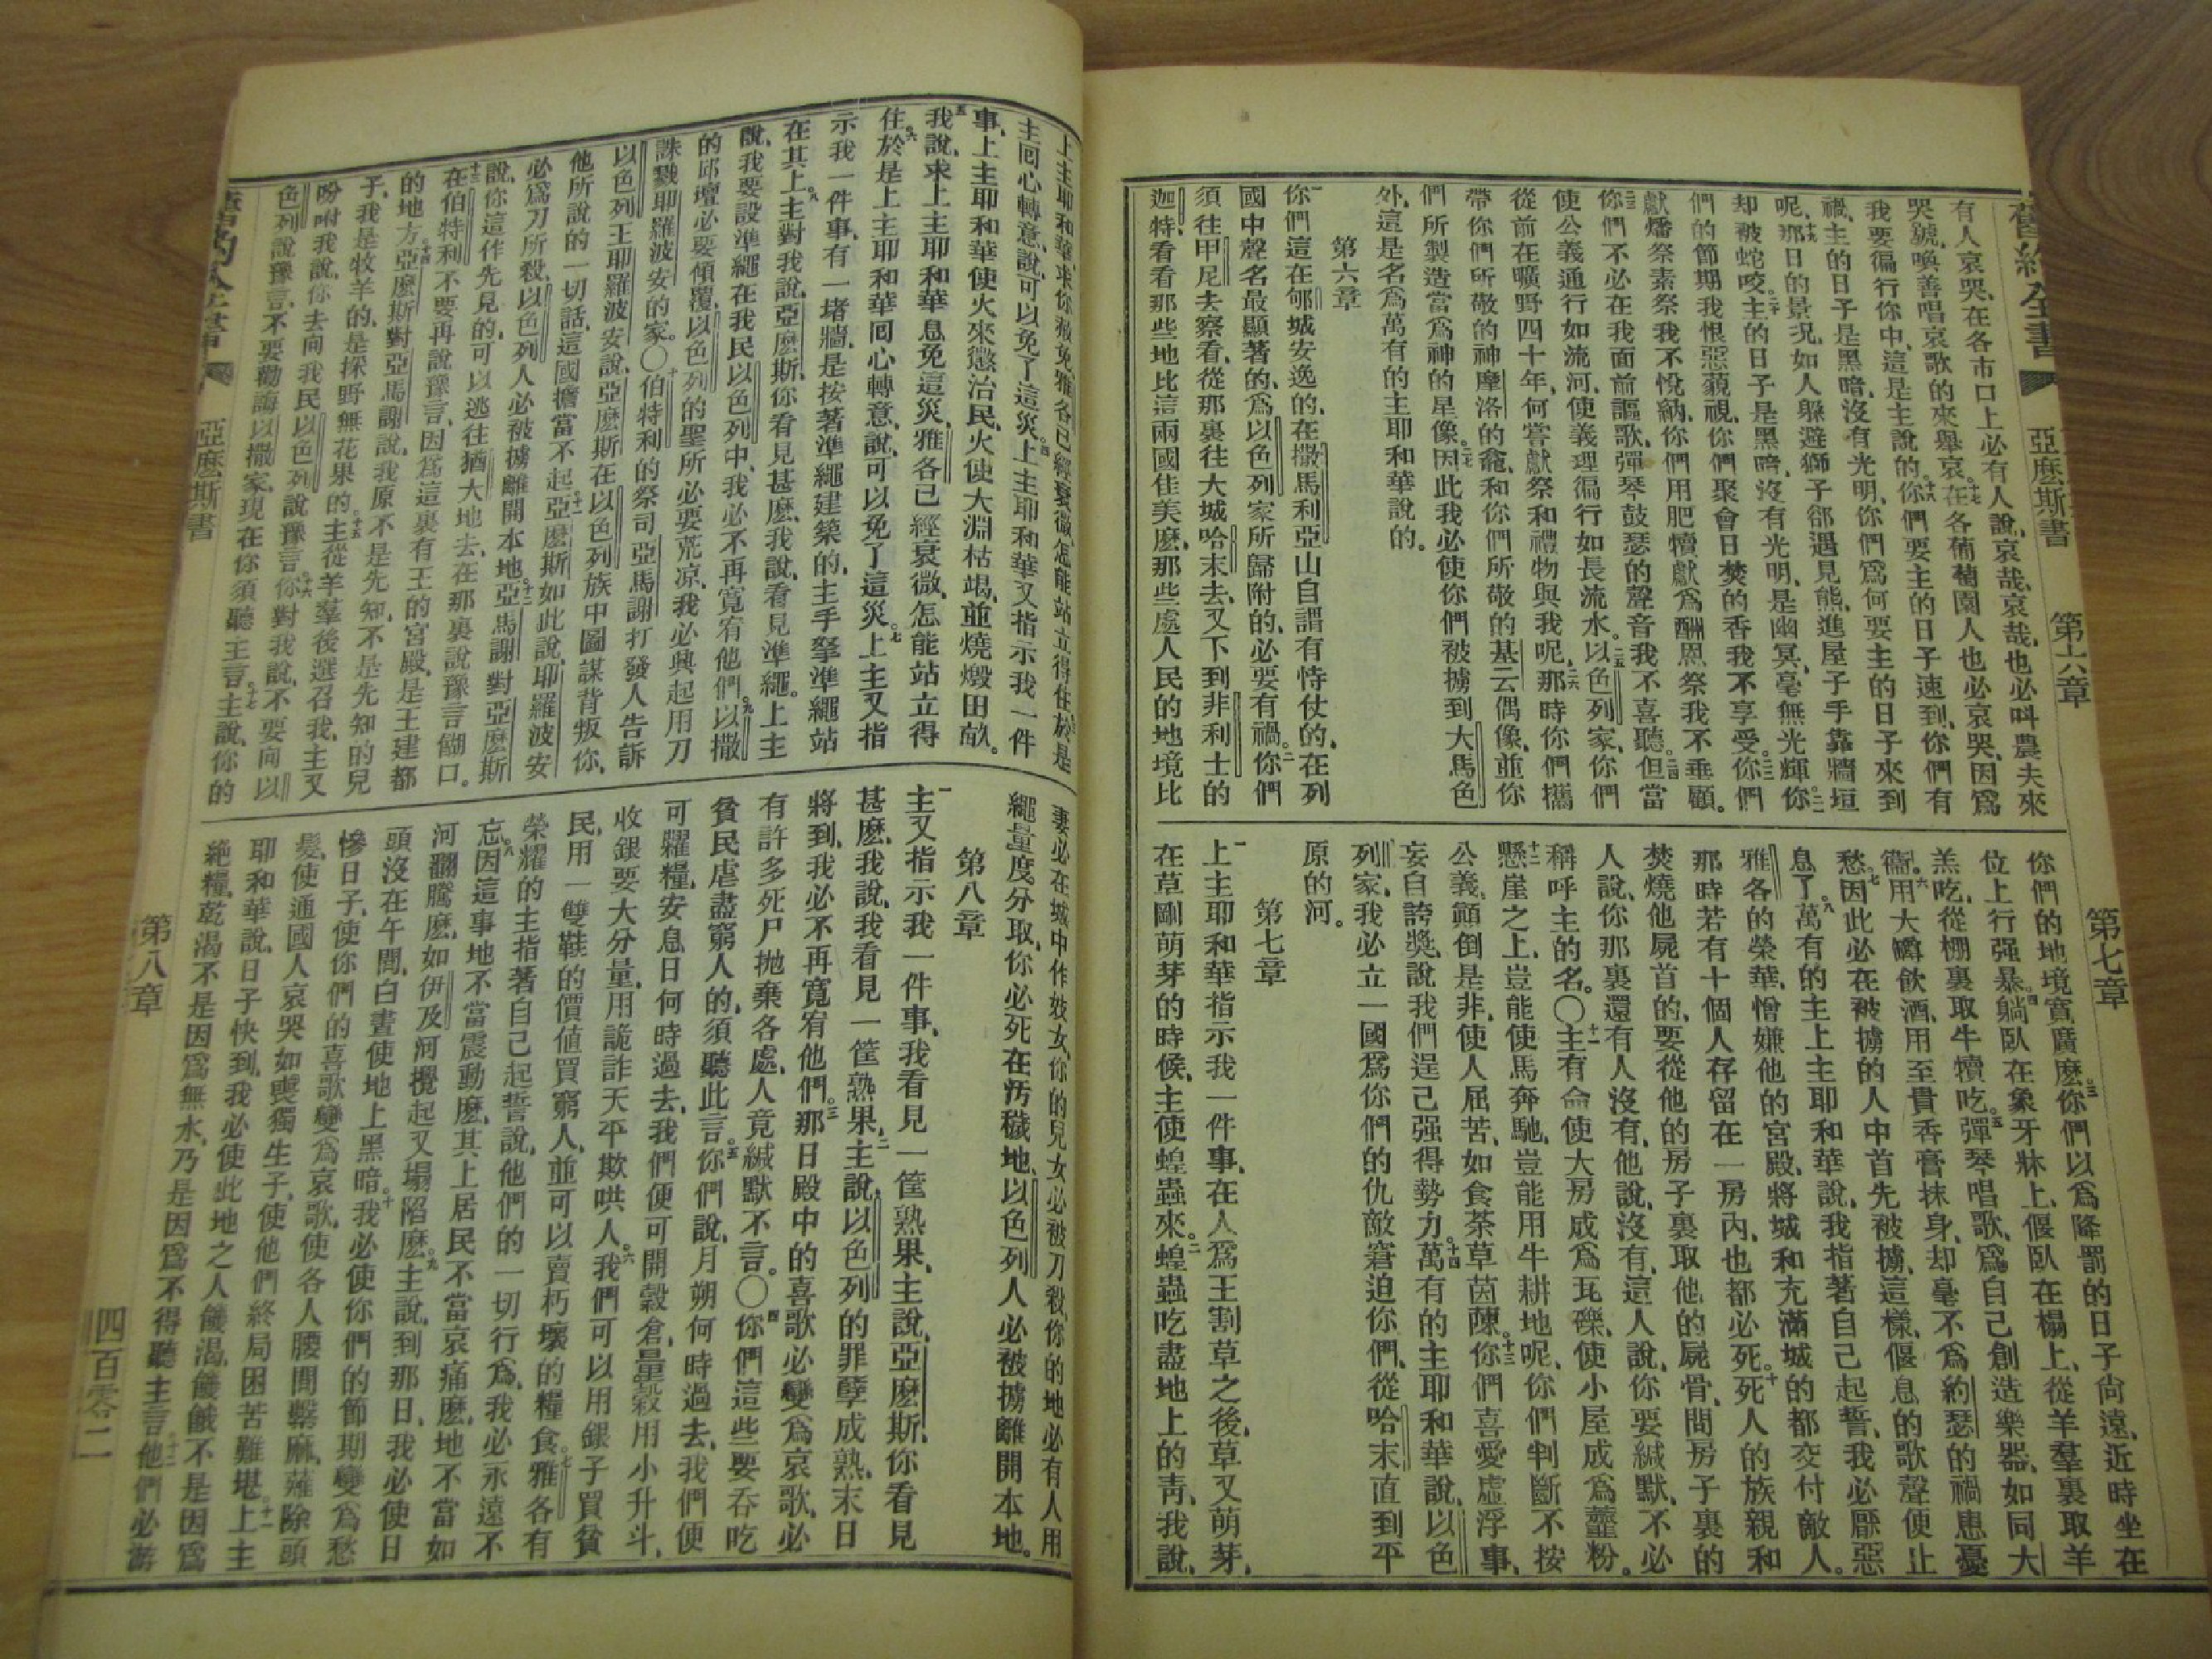 亞麽斯書
第六章
第七章
有人哀哭、在各市口上必有人說、哀哉、哀哉、也必呌農夫來
哭號、喚善唱哀歌的來舉哀。十七在各葡萄園人也必哀哭、因爲
我要徧行你中、這是主說的。十八你們要主的日子速到、你們有
禍、主的日子是黑暗、沒有光明、你們爲何要主的日子來到
呢、十九那日的景況、如人躱避獅子、郤遇見熊、進屋子手靠牆垣、
却被蛇咬。二十主的日子是黑暗、沒有光明、是幽冥、毫無光輝。二一你
們的節期我恨惡藐視、你們聚會日焚的香我不享受。二二你們
獻燔祭素祭、我不悅納、你們用肥犢獻爲酬恩祭、我不垂顧。
二三你們不必在我面前謳歌、彈琴鼓瑟的聲音、我不喜聽。二四但當
使公義通行如流河、使義理徧行如長流水。二五以色列家、你們
從前在曠野四十年、何嘗獻祭和禮物與我呢、二六那時你們攜
帶你們所敬的神摩洛的龕、和你們所敬的基云偶像、並你
們所製造當爲神的星像。二七因此我必使你們被擄到大馬色
外、這是名爲萬有的主耶和華說的。
第六章
一你們這在郇城安逸的、在撒馬利亞山自謂有恃仗的、在列
國中聲名最顯著的、爲以色列家所歸附的、必要有禍。二你們
須往甲尼去察看、從那裏往大城哈末去、又下到非利士的
迦特、看看那些地比這兩國佳美麽、那些處人民的地境比
你們的地境寬廣麽。三你們以爲降罰的日子尙遠、近時坐在
位上行强暴、四躺臥在象牙牀上、偃臥在榻上、從羊羣裏取羊
羔吃、從棚裏取牛犢吃。五彈琴唱歌、爲自己創造樂器、如同大
衞。六用大罇飲酒、用至貴香膏抹身、却毫不爲約瑟的禍患憂
愁、七因此必在被擄的人中首先被擄、這樣、偃息的歌聲便止
息了。八萬有的主上主耶和華說、我指著自己起誓、我必厭惡
雅各的榮華、憎嫌他的宮殿、將城和充滿城的都交付敵人。
那時若有十個人存留在一房內、也都必死。十死人的族親和
焚燒他屍首的、要從他的房子裏取他的屍骨、問房子裏的
人說、你那裏還有人沒有、他說、沒有、這人說、你要緘默、不必
稱呼主的名。〇十一主有命使大房成爲瓦礫、使小屋成爲虀粉。
十二懸崖之上、豈能使馬奔馳、豈能用牛耕地呢、你們判斷不按
公義、顚倒是非、使人屈苦、如食荼草茵蔯。十三你們喜愛虛浮事、
妄自誇獎、說我們逞己强得勢力。十四萬有的主耶和華說、以色
列家、我必立一國爲你們的仇敵、窘迫你們、從哈末直到平
原的河。
第七章
一上主耶和華指示我一件事、在人爲王割草之後、草又萌芽、
在草剛萌芽的時候、主使蝗蟲來。二蝗蟲吃盡地上的靑、我說、
上主耶和華求你赦免、雅各已經衰微、怎能站立得住、三於是
主回心轉意、說、可以免了這災。四上主耶和華又指示我一件
事、上主耶和華使火來懲治民、火使大淵枯竭、並燒燬田畝。
五我說、求上主耶和華息免這災、雅各已經衰微、怎能站立得
住、六於是上主耶和華回心轉意、說、可以免了這災。七上主又指
示我一件事、有一堵牆、是按著準繩建築的、主手拏準繩站
在其上。八主對我說、亞麽斯、你看見甚麽、我說、看見準繩。上主
說、我要設準繩在我民以色列中、我必不再寬宥他們。九以撒
的邱壇必要傾覆、以色列的聖所必要荒凉、我必興起用刀
誅戮耶羅波安的家。〇十伯特利的祭司亞馬謝打發人告訴
以色列王耶羅波安說、亞麽斯在以色列族中圖謀背叛你、
他所說的一切話、這國擔當不起。十一亞麽斯如此說、耶羅波安
必爲刀所殺、以色列人必被擄離開本地。十二亞馬謝對亞麽斯
說、你這作先見的、可以逃往猶大地去、在那裏說豫言餬口。
十三在伯特利不要再說豫言、因爲這裏有王的宮殿、是王建都
的地方。十四亞麽斯對亞馬謝說、我原不是先知、不是先知的兒
子、我是牧羊的、是採野無花果的。十五主從羊羣後選召我、主又
吩咐我說、你去向我民以色列說豫言。十六你對我說、不要向以
色列說豫言、不要勸誨以撒家、現在你須聽主言。十七主說、你的
妻必在城中作妓女、你的兒女必被刀殺、你的地必有人用
繩量度分取、你必死在汚穢地、以色列人必被擄離開本地。
第八章
一主又指示我一件事、我看見一筐熟果、主說、亞麽斯、你看見
甚麽、我說、我看見一筐熟果。二主說、以色列的罪孽成熟、末日
將到、我必不再寬宥他們。三那日殿中的喜歌必變爲哀歌、必
有許多死尸拋棄各處、人竟緘默不言。〇四你們這些要吞吃
貧民、虐盡窮人的、須聽此言。五你們說、月朔何時過去、我們便
可糶糧、安息日何時過去、我們便可開穀倉、量穀用小升斗、
收銀要大分量、用詭詐天平欺哄人。六我們可以用銀子買貧
民、用一雙鞋的價値買窮人、並可以賣朽壞的糧食。七雅各有
榮耀的主指著自己起誓說、他們的一切行爲、我必永遠不
忘、八因這事地不當震動麽、其上居民不當哀痛麽、地不當如
河翻騰麽、如伊及河攪起又塌陷麽。九主說、到那日、我必使日
頭沒在午間、白晝使地上黑暗。十我必使你們的節期變爲愁
慘日子、使你們的喜歌變爲哀歌、使各人腰間繫麻、薙除頭
髮、使通國人哀哭如喪獨生子、使他們終局困苦難堪。十一上主
耶和華說、日子快到、我必使此地之人饑渴、饑餓不是因爲
絶糧、乾渴不是因爲無水、乃是因爲不得聽主言。十二他們必游
亞麽斯書
第八章
四百零二